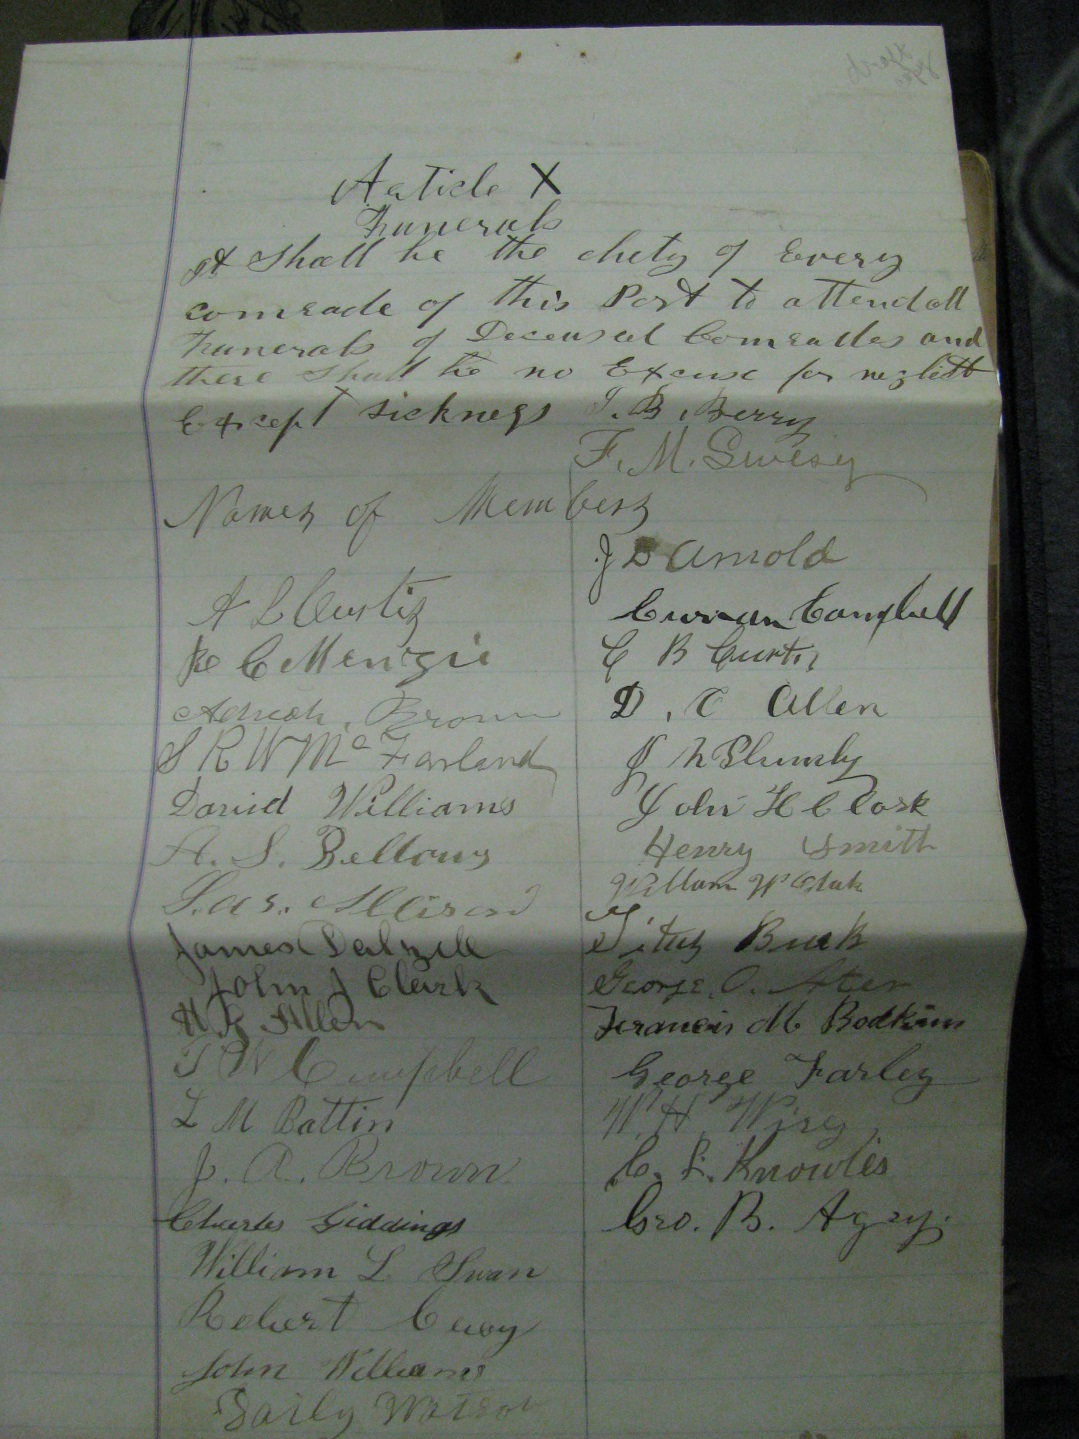 Article X
Funerals
It Shall be the duty of Every
comrade of this Post to attend all
Funerals of Deceased Comrades and
there Shall be no Excuse for neglect
Except Sickness T. B. Berry
F. M. Swesy
Names of Members
A L Curtis
C Menzie
Brown
S R W Mc Farland
David Williams
A. S. Bellows
Jas. Allison
James Dalzell
John J Clark
Allen
T W Campbell
L M Battin
J. A. Brown
Charles Giddings
William L Swan
Robert
John Williams
Baily Watson
J D Arnold
Curran Campbell
C B Curtis
D. C Allen
J N Plumly
John H Clark
Henry Smith
William W Clark
Titus Buck
George O.
Francis M Bodkins
George Farley
W. H. Wisey
C. L. Knowles
Geo. B. Agey.